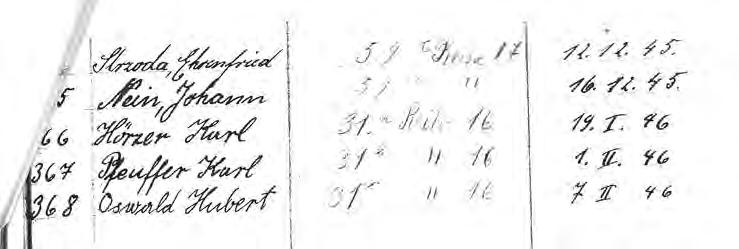 Strzoda, Ehrenfried 59 17 12. 12. 45.
5 Nein, Johann 59 " " 16. 12. 45.
66 Hörzer Karl 31. 16 19. I. 46
367 Pfeuffer Karl 31 " 16 1. II. 46
368 Oswald Hubert 31 " 16 7 II 46